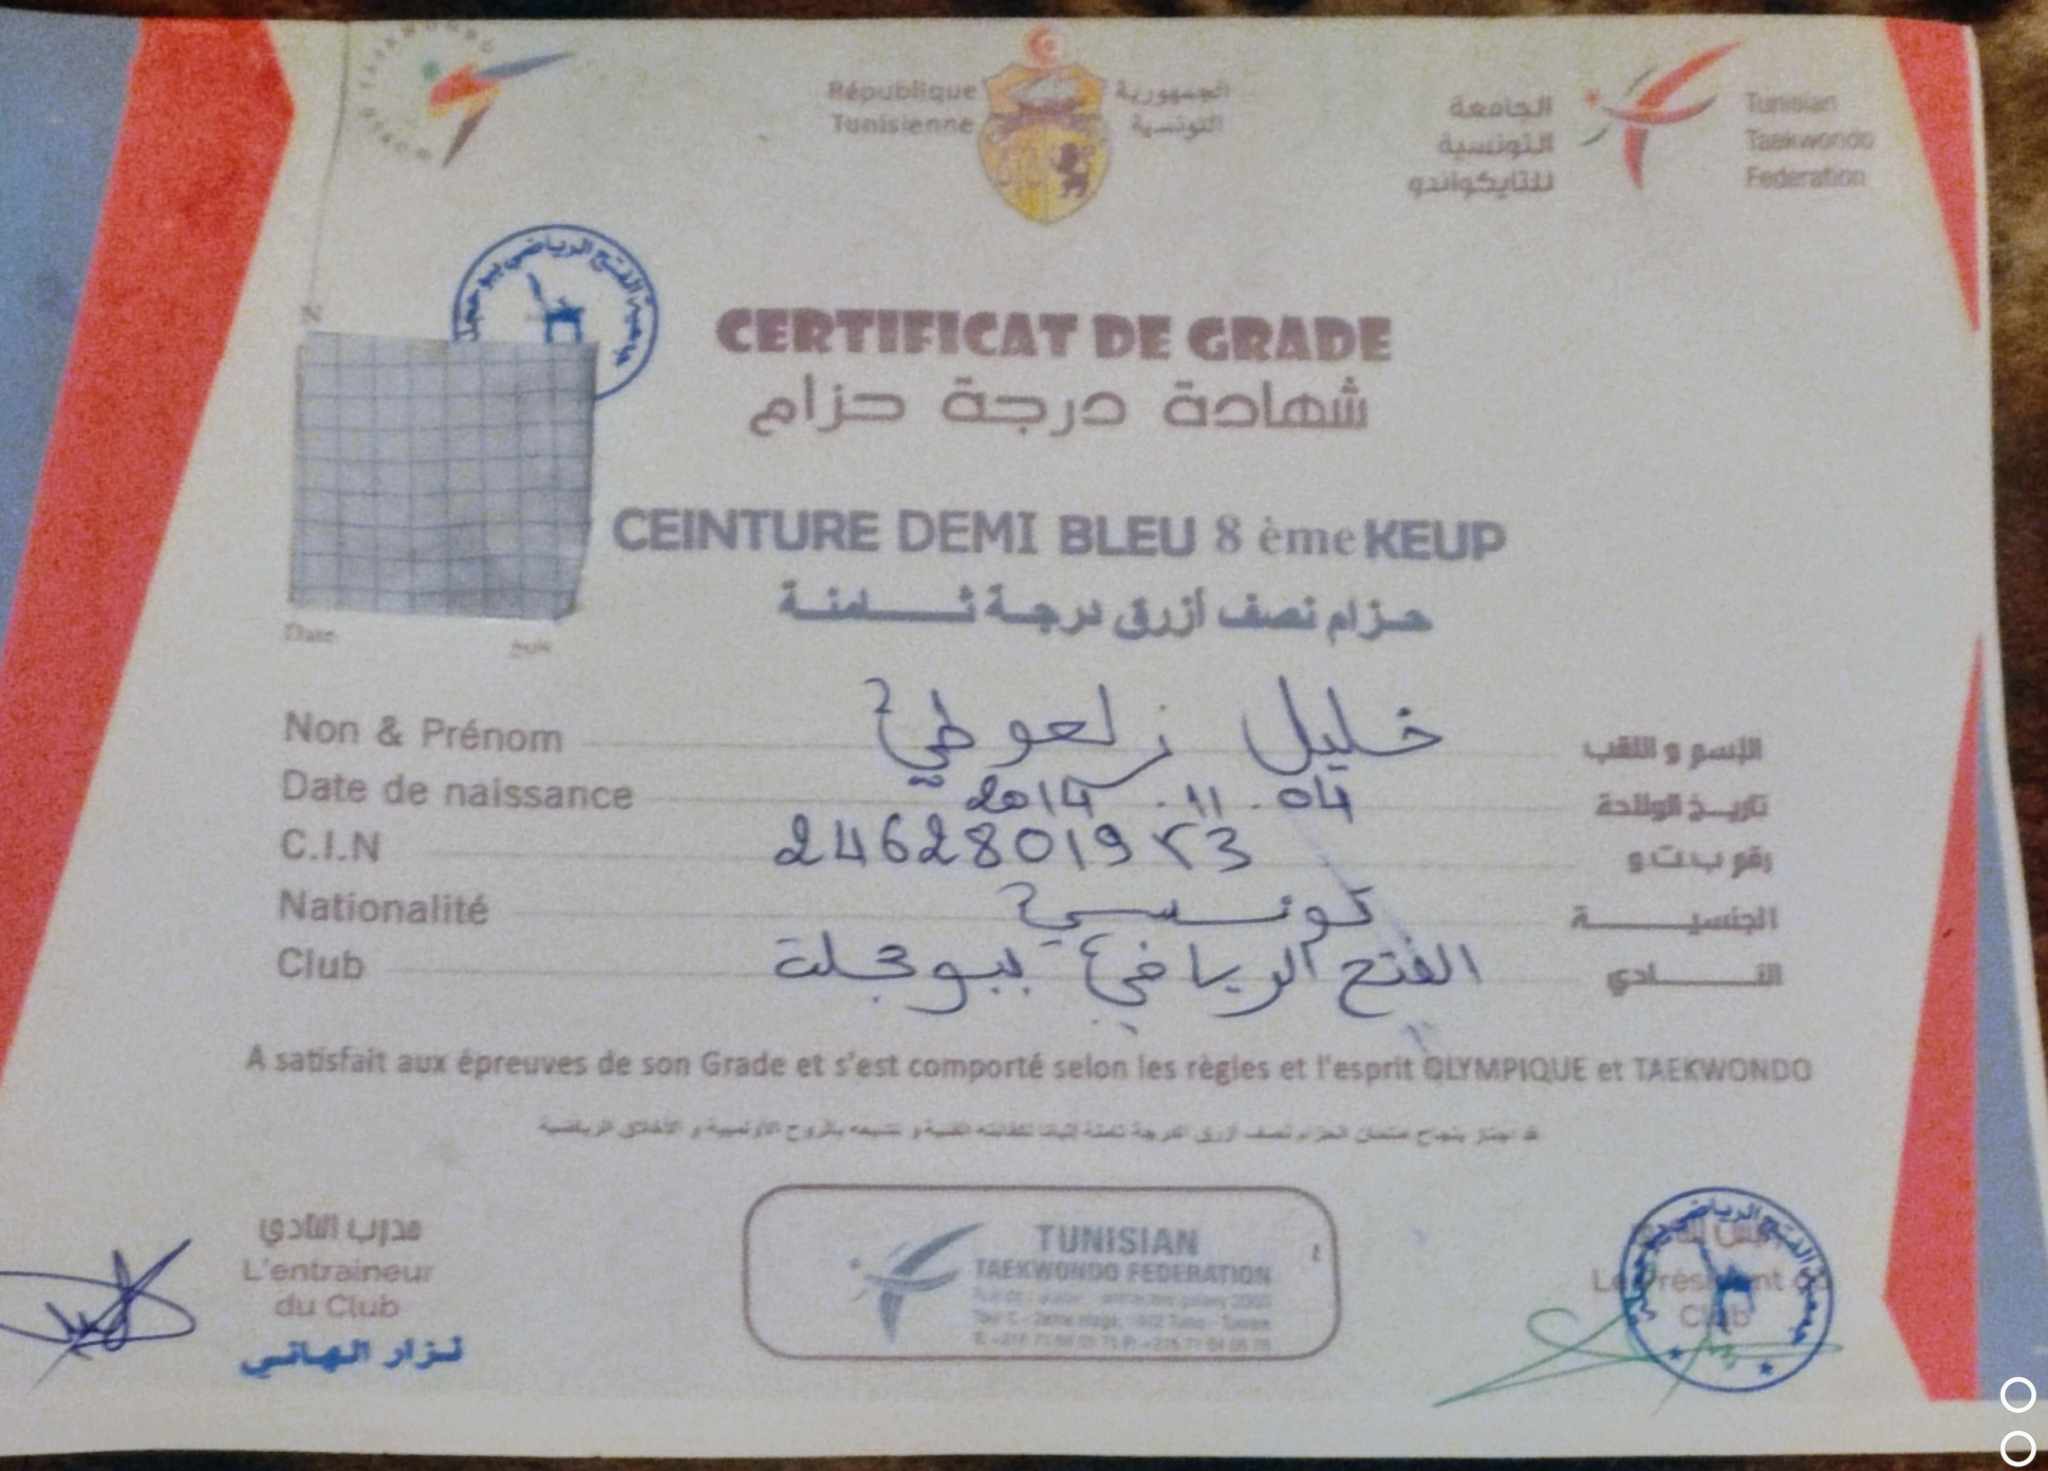 République
Tunisienne
الجمهورية
التونسية
الجامعة
التونسية
للتايكواندو
Tunisian
Taekwondo
Federation
CERTIFICAT DE GRADE
شهادة درجة حزام
CEINTURE DEMI BLEU 8 ème KEUP
حزام نصف أزرق درجة ثامنة
Date
Non & Prénom خليل زلعوطي الإسم و اللقب
Date de naissance 2014 . 11 . 04 تاريخ الولادة
C.I.N 24628019 3 رقم ب.ت.و
Nationalité تونسي الجنسية
Club الفتح الرياضي ببوحجلة النادي
A satisfait aux épreuves de son Grade et s'est comporté selon les règles et l'esprit OLYMPIQUE et TAEKWONDO
مدرب النادي
L'entraineur
du Club
نزار الهاني
TUNISIAN
TAEKWONDO FEDERATION
Le Président du
Club